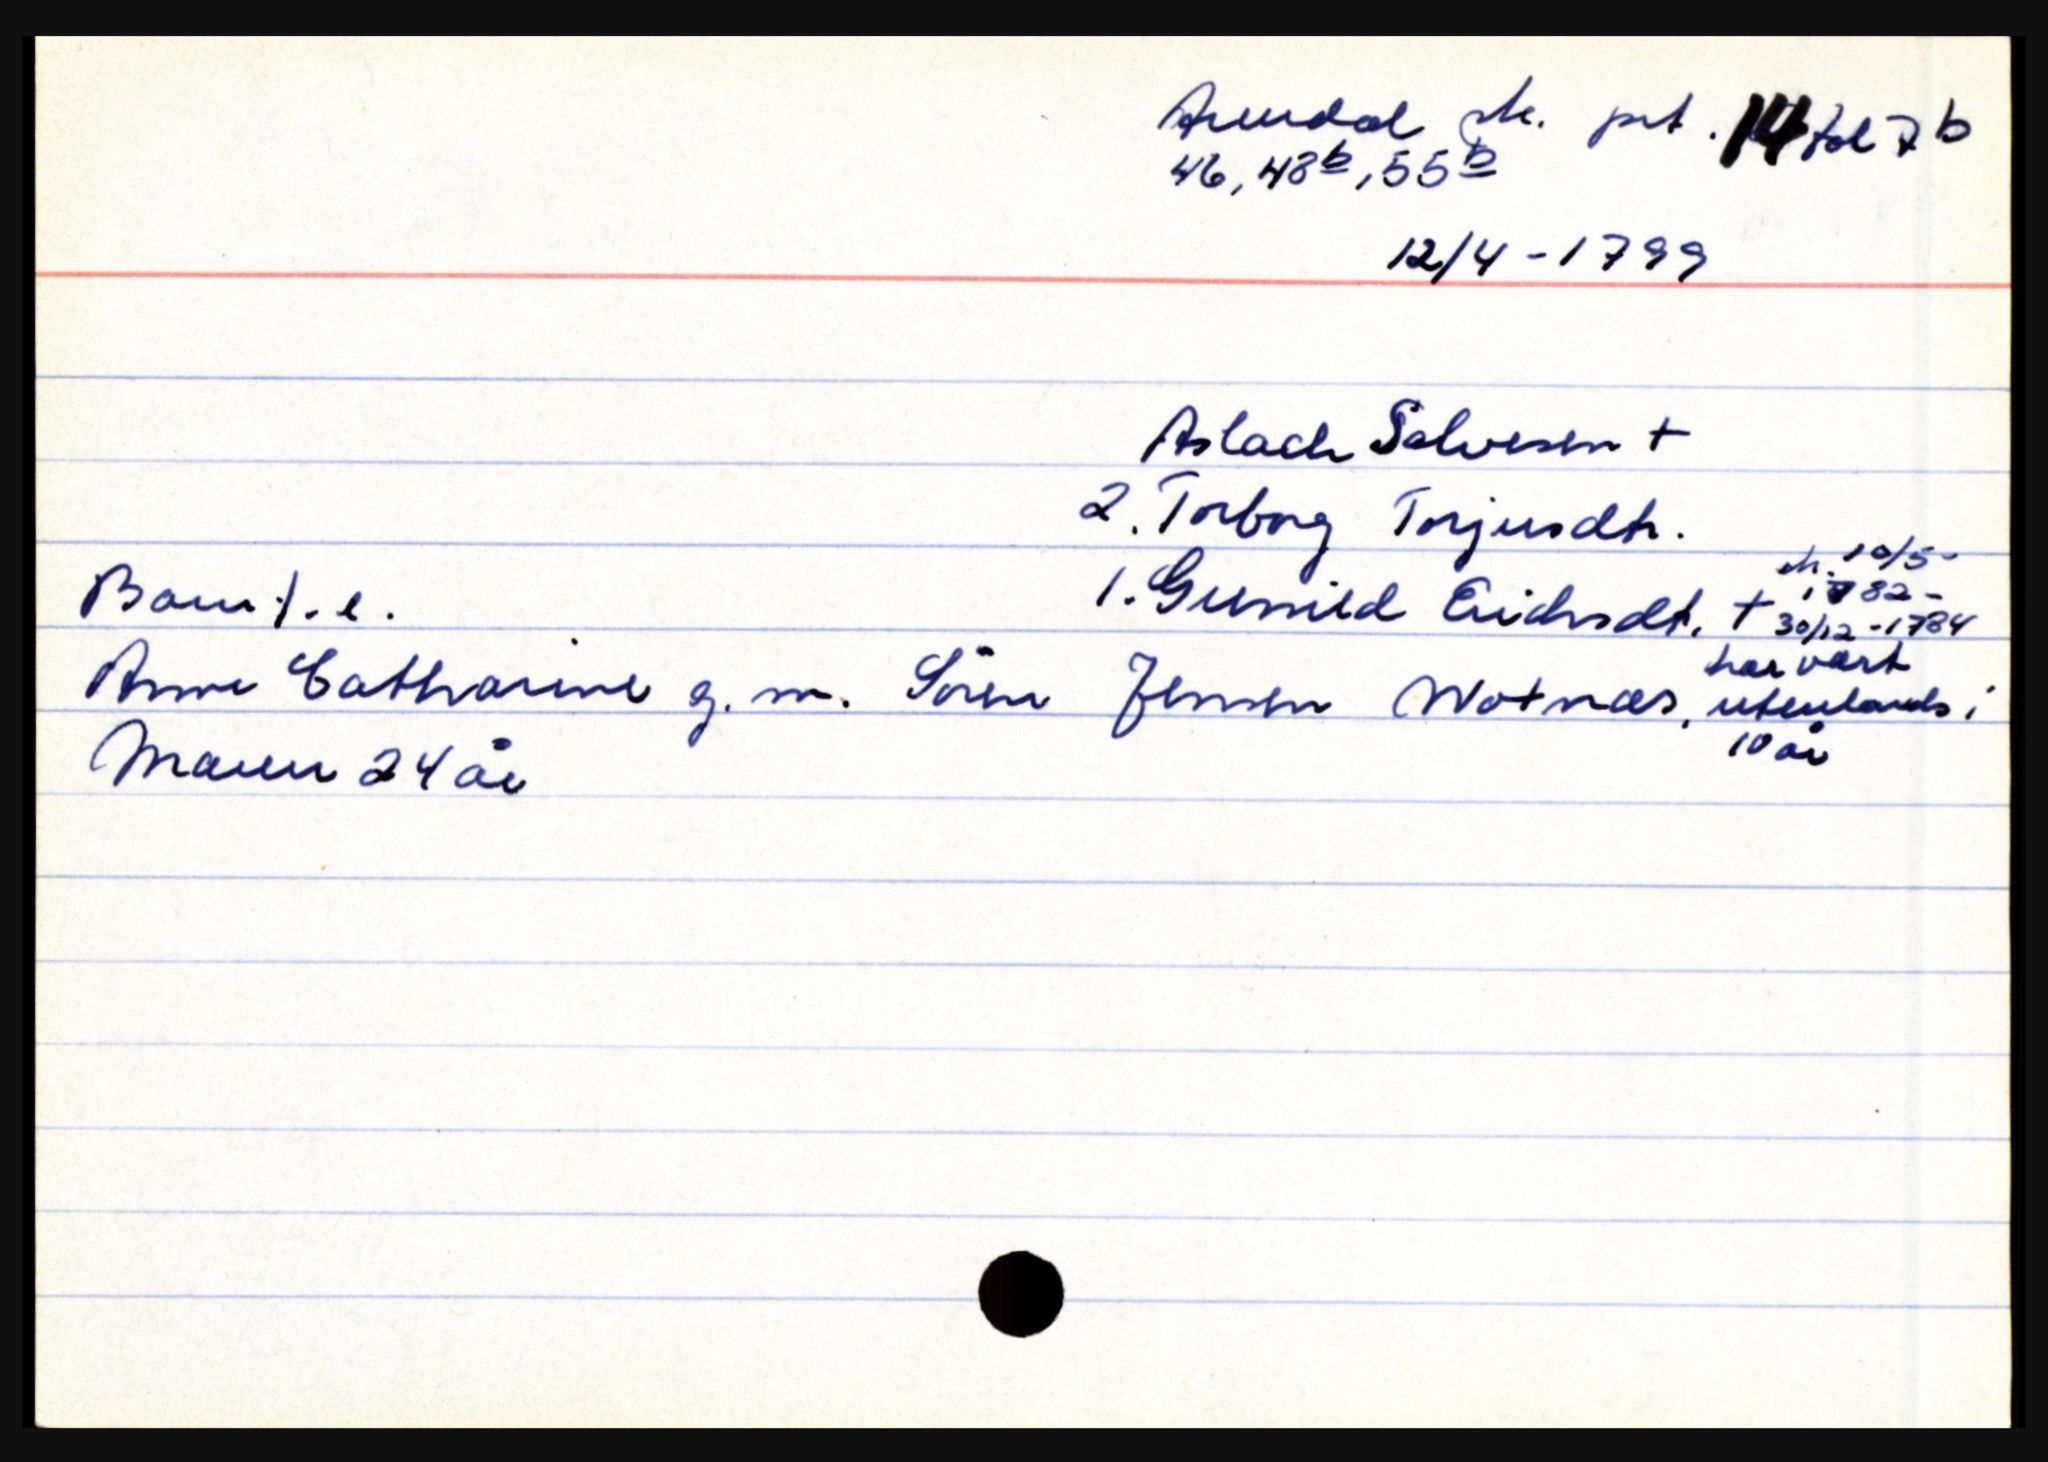 Arendal sk. prt. 14 fol 7b
46, 48b, 55b
12/4 - 1799
Aslach Salvesen +
2. Torborg Torjusdtr.
1. Gunnild Erichsdt. + sk. 10/5-
1782-
30/12 - 1784
Barn f. e.
Anne Catharine g. m. Sören Jensen Wotnæs, har vært
utenlands i
10 år
Maren 24 år